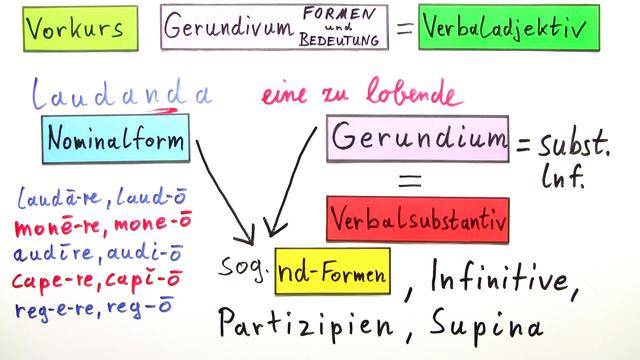 Vorkurs
Gerundivum FORMEN und BEDEUTUNG = Verbaladjektiv
Laudanda eine zu lobende
Nominalform
Gerundium = subst. Inf.
=
Verbalsubstantiv
laudā-re, laud-ō
monē-re, mone-ō
audīre, audi-ō
cape-re, capĭ-ō
reg-e-re, reg-ō
sog. nd-Formen, Infinitive,
Partizipien, Supina